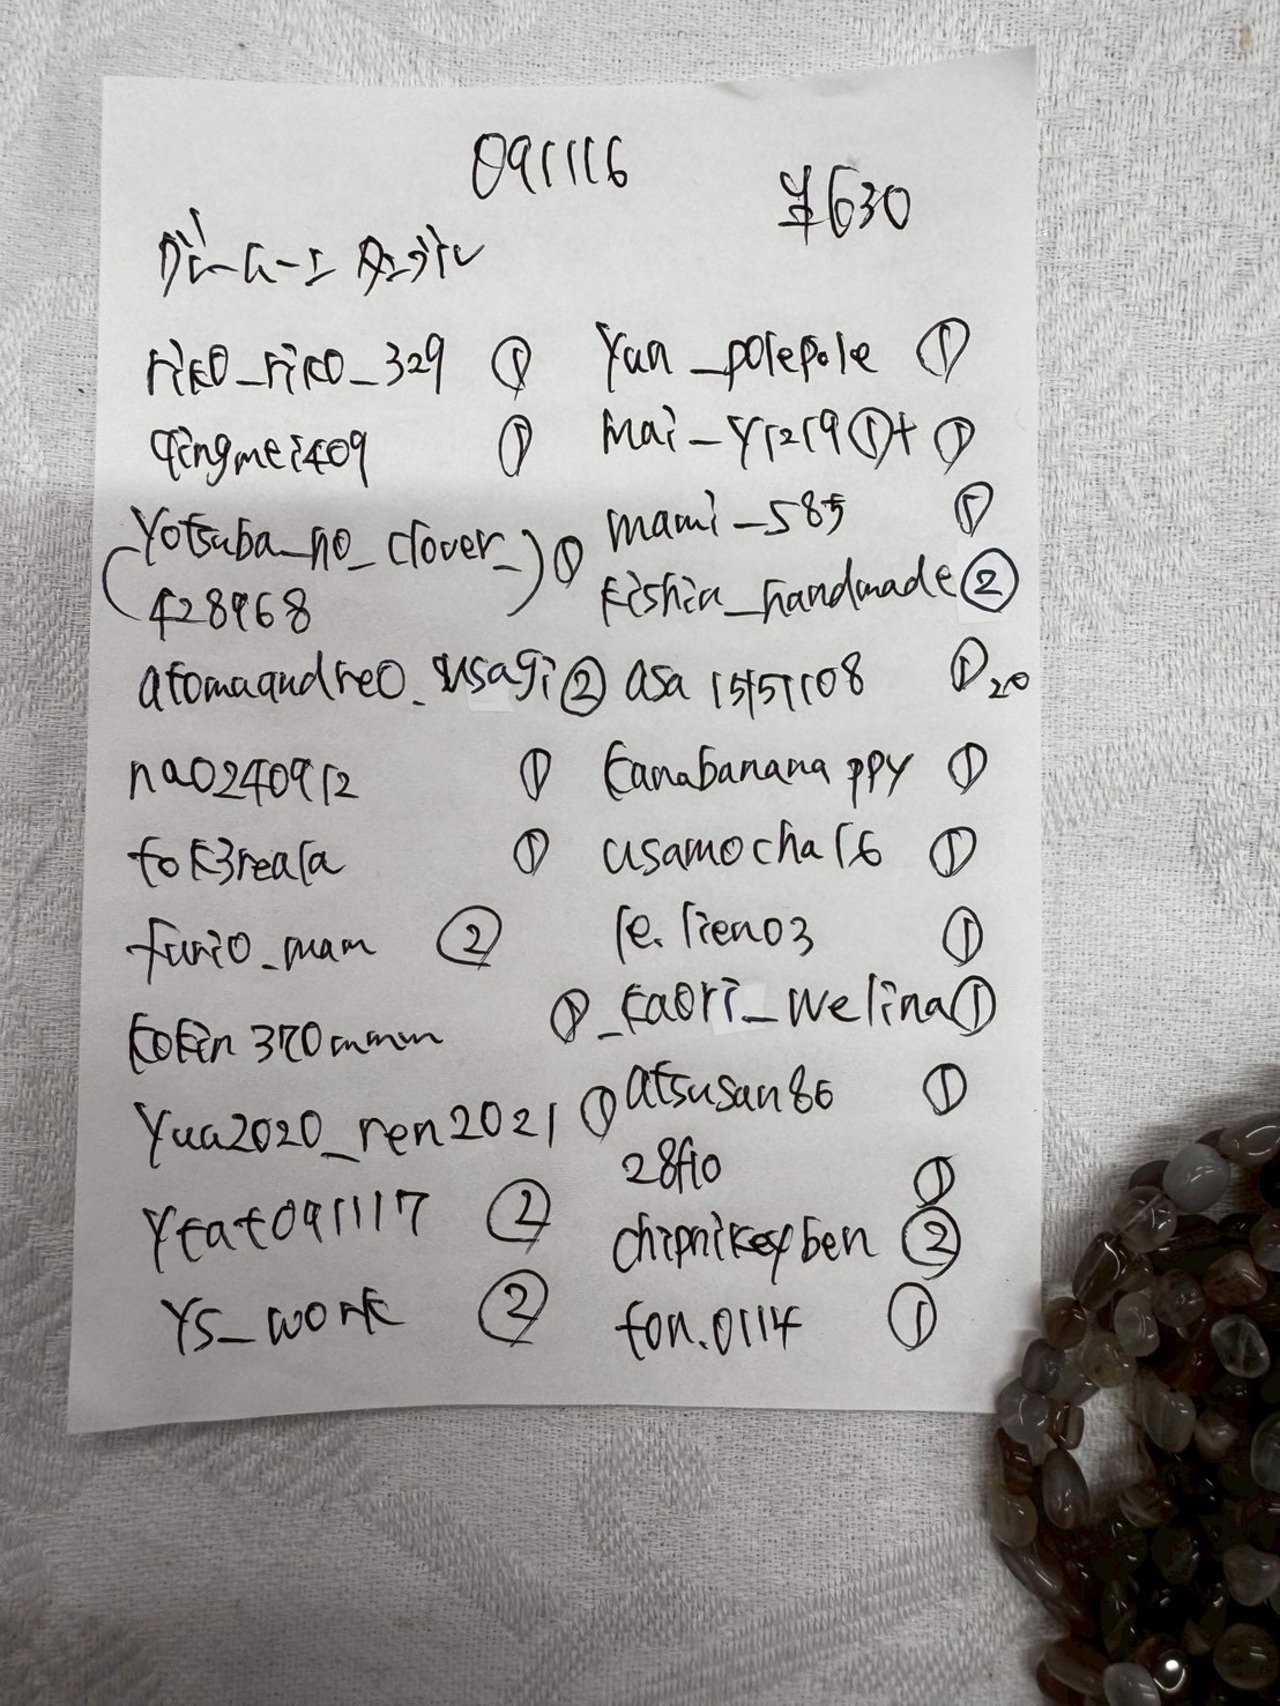 091116
¥630
riko_riko_329 ①
qingmei409 ①
(yotsuba_no_clover_
428968) ①
atomaandreo_usagi ②
nao240912 ①
tok3reala ①
furio_mam ②
kokin370mmm ①
yua2020_ren2021 ①
ytat091117 ②
ys_work ②
yun_polepole ①
mai_y1219 ①+ ①
mami_585 ①
kishia_handmade ②
asa15151108 ① 20
kanabananappy ①
usamocha16 ①
le.lien03 ①
_kaori_welina ①
atsusan86 ①
28flo ①
chipnikeyben ②
ton.0114 ①